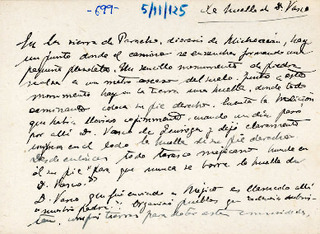 -699- 5/11/125 La huella de D. Vasco
En la sierra de Paracho, diócesis de Michoacán, hay
un punto donde el camino se ensancha formando una
pequeña plazoleta. Un sencillo monumento de piedra
a un metro escaso del suelo. Junto a este
monumento hay en la tierra una huella, donde todo
caminante coloca su pie derecho. Cuenta la tradición
que había llovido cuando un día pasó
por allí D. Vasco de Quiroga y dejó claramente
impresa en el lodo la huella de su pie derecho
Desde entonces todo tarasco mejicano hunde en
él su pie "para que nunca se borre la huella de
D. Vasco."
D. Vasco que fué enviado a Méjico es llamado allí
"nuestro padre". Organizó pueblos que todavía subsis-
ten,